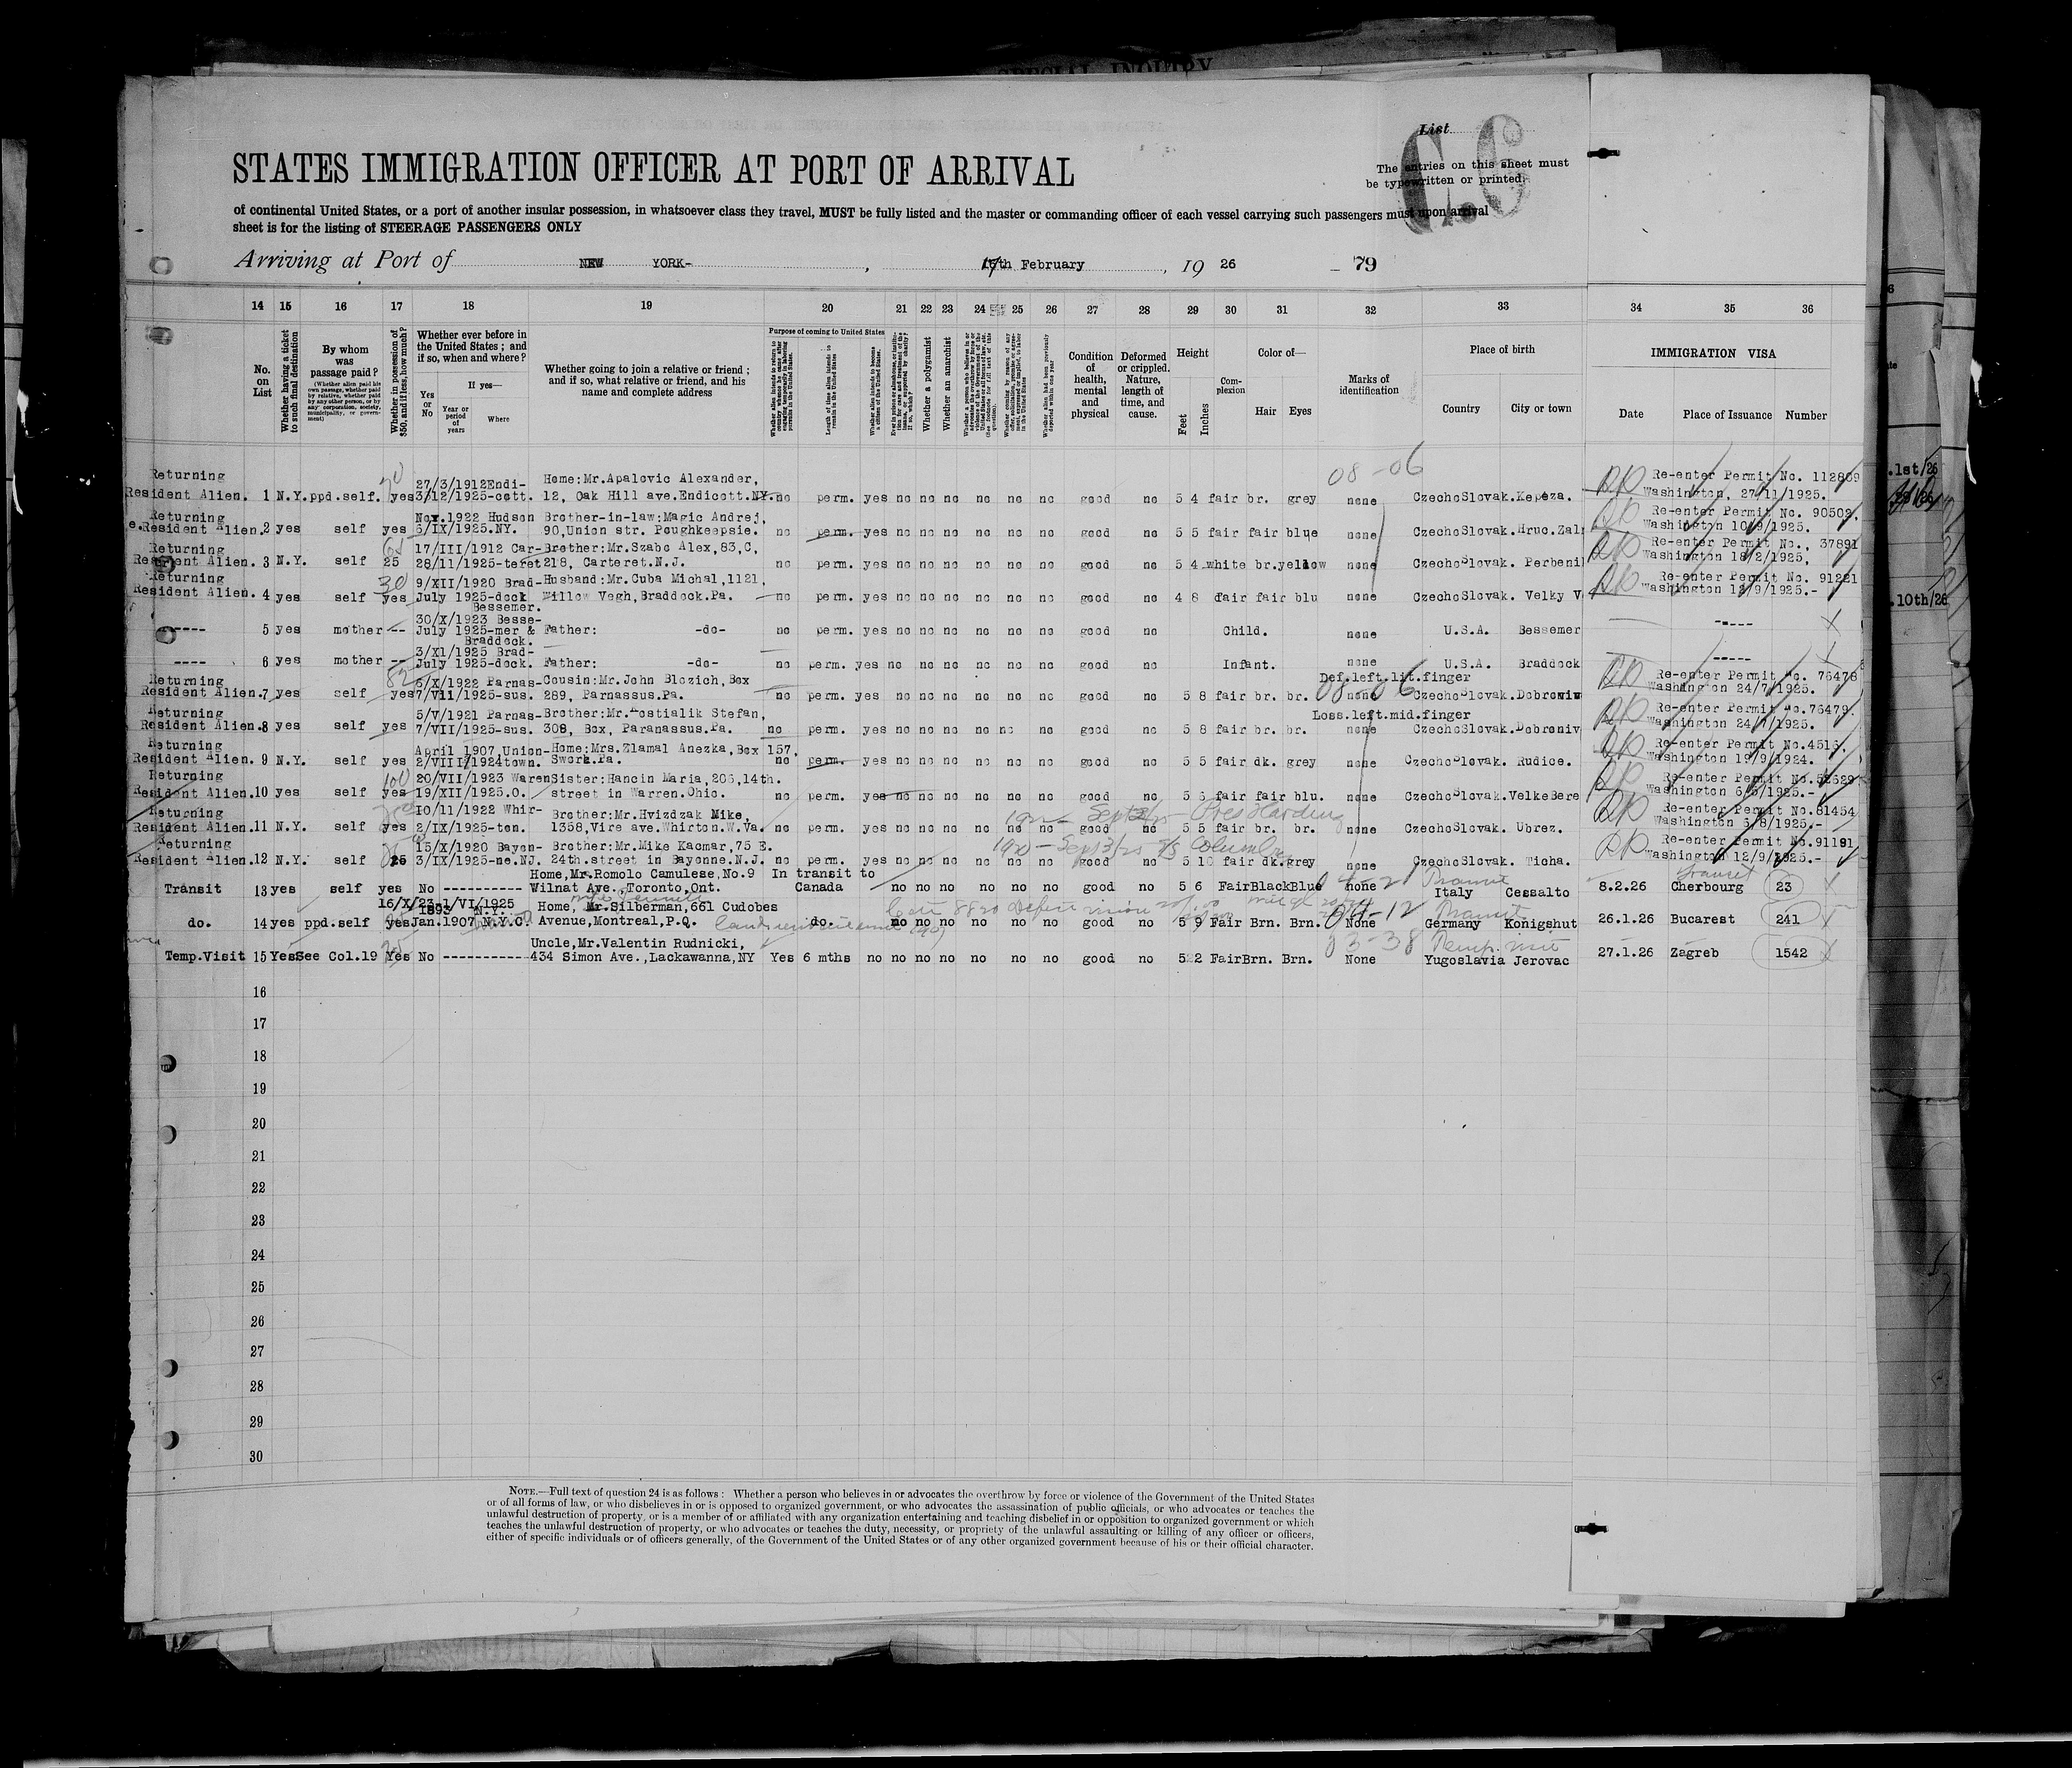 SPECIAL INQUIRY
List
C.G
The entries on this sheet must
be typewritten or printed.
STATES IMMIGRATION OFFICER AT PORT OF ARRIVAL
of continental United States, or a port of another insular possession, in whatsoever class they travel, MUST be fully listed and the master or commanding officer of each vessel carrying such passengers must upon arrival
sheet is for the listing of STEERAGE PASSENGERS ONLY
Arriving at Port of NEW YORK- , th February , 19 26 79
14 15 16 17 18 19 20 21 22 23 24 25 26 27 28 29 30 31 32 33 34 35 36
No. on List
Whether having a ticket to such final destination
By whom was passage paid?
(Whether alien paid his own passage, whether paid by relative, whether paid by any other person, or by any corporation, society, municipality, or government)
Whether in possession of $50, and if less, how much?
Whether ever before in the United States; and if so, when and where?
Yes or No
If yes—
Year or period of years
Where
Whether going to join a relative or friend; and if so, what relative or friend, and his name and complete address
Purpose of coming to United States
Length of time alien intends to remain in the United States
Whether alien intends to become a citizen of the United States
Whether a polygamist
Whether an anarchist
Condition of health, mental and physical
Deformed or crippled. Nature, length of time, and cause.
Height
Feet
Inches
Complexion
Color of—
Hair
Eyes
Marks of identification
Place of birth
Country
City or town
IMMIGRATION VISA
Date
Place of Issuance
Number
08-06
Returning 27/3/1912Endi- Home:Mr.Apalovic Alexander, Re-enter Permit No. 112809
Resident Alien. 1 N.Y.ppd.self. yes3/12/1925-cott. 12, Oak Hill ave.Endicott.NY.no perm. yes no no no no no no good no 5 4 fair br. grey none CzechoSlovak.Kepeza. Washington, 27/11/1925.
Returning Nov.1922 Hudson Brother-in-law:Magic Andrej, Re-enter Permit No. 90502.
e.Resident Alien.2 yes self yes 6/IX/1925.NY. 90,Union str. Poughkeepsie. no perm. yes no no no no no no good no 5 5 fair fair blue none CzechoSlovak.Hruc.Zal Washington 10/9/1925.
Returning 17/III/1912 Car-Brother:Mr.Szabo Alex,83,C, Re-enter Permit No., 37891
Resident Alien. 3 N.Y. self 25 28/11/1925-teret218, Carteret.N.J. no perm. yes no no no no no no good no 5 4 white br.yellow none CzechoSlovak. Perbenil Washington 18/2/1925,
Returning 30 9/XII/1920 Brad-Husband:Mr.Cuba Michal,1121, Re-enter Permit No. 91221
Resident Alien. 4 yes self yes July 1925-dock Willow Vegh,Braddock.Pa. no perm. yes no no no no no no good no 4 8 fair fair blu none CzechoSlovak. Velky V Washington 12/9/1925.-
Bessemer.
30/X/1923 Besse-
----- 5 yes mother -- July 1925-mer & Father: -do- no perm. yes no no no no no no good no Child. none U.S.A. Bessemer -----
Braddock.
3/XI/1925 Brad-
---- 6 yes mother -- July 1925-dock. Father: -do- no perm. yes no no no no no no good no Infant. none U.S.A. Braddock -----
Def.left.lit.finger
Returning 6/X/1922 Parnas-Cousin:Mr.John Blozich,Box 08-06 Re-enter Permit No. 76478
Resident Alien.7 yes self yes7/VII/1925-sus. 289, Parnassus.Pa. no perm. yes no no no no no no good no 5 8 fair br. br. none CzechoSlovak.Dobroniv Washington 24/7/1925.
Loss.left.mid.finger
Returning 5/V/1921 Parnas-Brother:Mr.Kostialik Stefan, Re-enter Permit No.76479.
Resident Alien.8 yes self yes 7/VII/1925-sus. 308, Box, Paranassus.Pa. no perm. yes no no no no no no good no 5 8 fair br. br. none CzechoSlovak.Dobroniv Washington 24/7/1925.
Returning April 1907,Union-Home:Mrs.Zlamal Anezka,Box 157, Re-enter Permit No.4516.
Resident Alien. 9 N.Y. self yes 2/VIII/1924town. Swork.Pa. no perm. yes no no no no no no good no 5 5 fair dk. grey none CzechoSlovak. Rudice. Washington 19/9/1924.
Returning 100 20/VII/1923 WarenSister:Hancin Maria,206,14th. Re-enter Permit No.52629
Resident Alien.10 yes self yes 19/XII/1925.O. street in Warren.Ohio. no perm. yes no no no no no no good no 5 6 fair fair blu. none CzechoSlovak.VelkeBere Washington 6/5/1925.-
Returning 10/11/1922 Whir- Brother:Mr.Hvizdzak Mike, Pres Harding Re-enter Permit No.81454
Resident Alien.11 N.Y. self yes 2/IX/1925-ton. 1358,Vire ave.Whirton.W.Va. no perm. yes no no no no no no good no 5 5 fair br. br. none CzechoSlovak. Ubrez. Washington 6/8/1925.-
Returning 15/X/1920 Bayon- Brother:Mr.Mike Kacmar,75 E. 1920 - Sept 3/25 S/S Columbus Re-enter Permit No.91191
Resident Alien.12 N.Y. self 25 3/IX/1925-ne.NJ. 24th.street in Bayonne.N.J. no perm. yes no no no no no no good no 5 10 fair dk.grey none CzechoSlovak. Ticha. Washington 12/9/1925.-
Home,Mr.Romolo Camulese,No.9 In transit to Transit
Transit 13yes self yes No ---------- Wilnat Ave.,Toronto,Ont. Canada no no no no no no good no 5 6 FairBlackBlue none Italy Cessalto 8.2.26 Cherbourg 23
16/X/23-1/VI/1925
1893 N.Y. Home, Mr.Silberman,661 Cudobes 04-12 Transit
do. 14yes ppd.self yesJan.1907 N.Y.C. Avenue,Montreal,P.Q. do. no no no no no no good no 5 9 Fair Brn. Brn. None Germany Konigshut 26.1.26 Bucarest 241
Uncle,Mr.Valentin Rudnicki, 03-38 Temp. visit
Temp.Visit 15YesSee Col.19 Yes No ---------- 434 Simon Ave.,Lackawanna,NY Yes 6 mths no no no no no no no good no 5 2 FairBrn. Brn. None Yugoslavia Jerovac 27.1.26 Zagreb 1542
16
17
18
19
20
21
22
23
24
25
26
27
28
29
30
NOTE.—Full text of question 24 is as follows: Whether a person who believes in or advocates the overthrow by force or violence of the Government of the United States
or of all forms of law, or who disbelieves in or is opposed to organized government, or who advocates the assassination of public officials, or who advocates or teaches the
unlawful destruction of property, or is a member of or affiliated with any organization entertaining and teaching disbelief in or opposition to organized government or which
teaches the unlawful destruction of property, or who advocates or teaches the duty, necessity, or propriety of the unlawful assaulting or killing of any officer or officers,
either of specific individuals or of officers generally, of the Government of the United States or of any other organized government because of his or their official character.
.1st/26
.10th/26